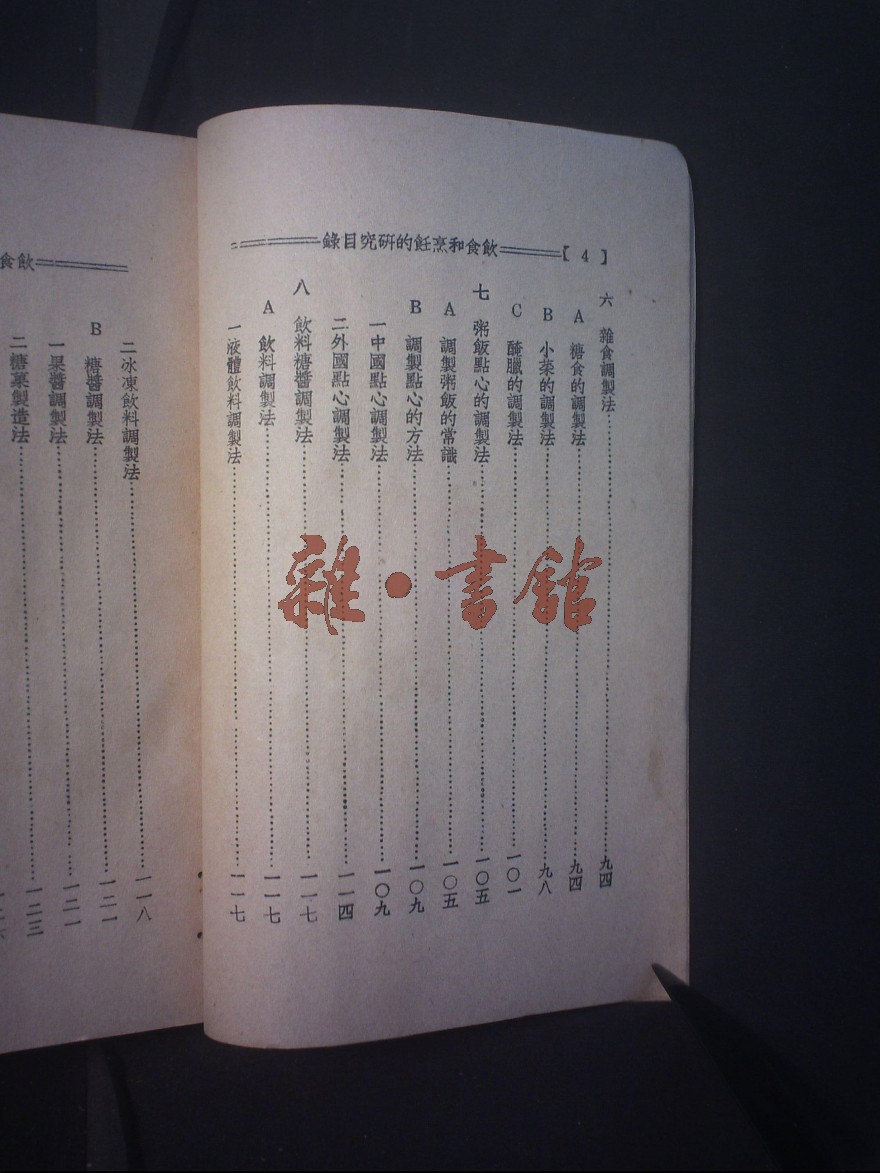 【4】 飲食和烹飪的研究目錄
六 雜食調製法 九四
A 糖食的調製法 九四
B 小菜的調製法 九八
C 醃臘的調製法 一〇一
七 粥飯點心的調製法 一〇五
A 調製粥飯的常識 一〇五
B 調製點心的方法 一〇九
一中國點心調製法 一〇九
二外國點心調製法 一一四
八 飲料糖醬調製法 一一七
A 飲料調製法 一一七
一液體飲料調製法 一一七
飲食
二冰凍飲料調製法 一一八
B 糖醬調製法 一二一
一果醬調製法 一二一
二糖菓製造法 一二三
雜·書館